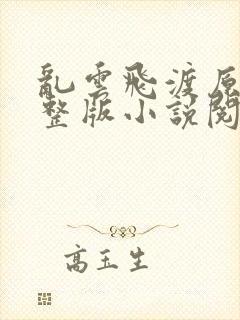 亂雲飛渡原
整版小說閱
高玉生